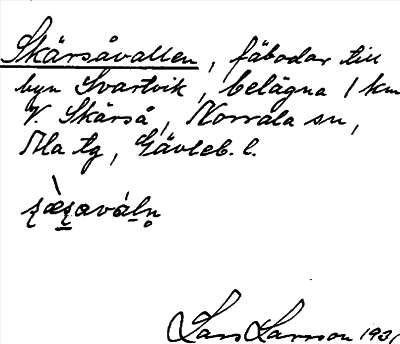 Skärsåvallen, fäbodar till
byn Svartvik, belägna 1 km
V. Skärså, Norrala sn,
Ala tg, Gävleb. l.
Lars Larsson 1931